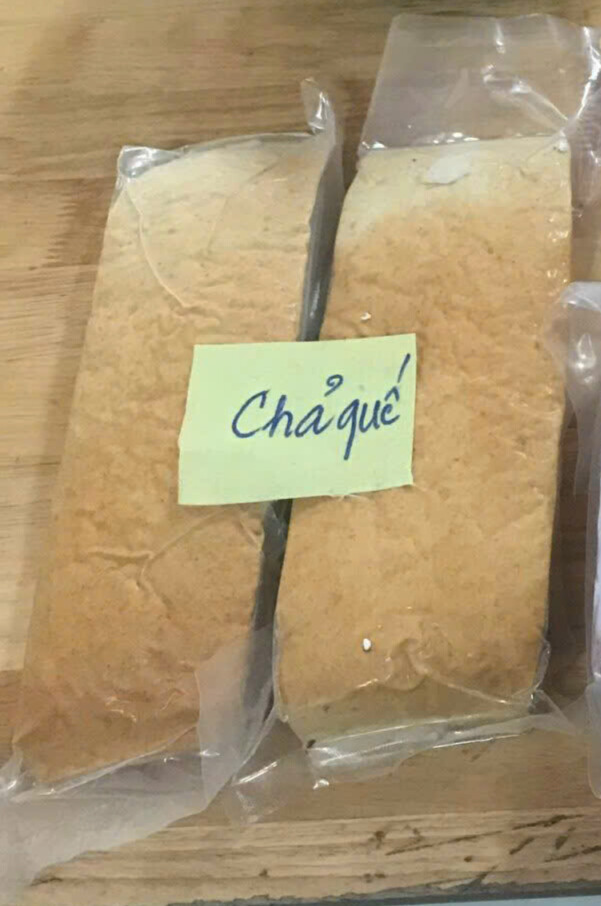 Chả quế